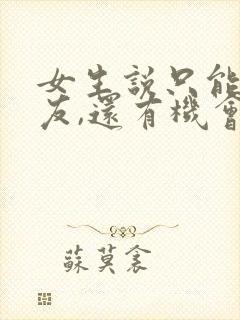 女生說只能
友,還有機會
蘇莫衾